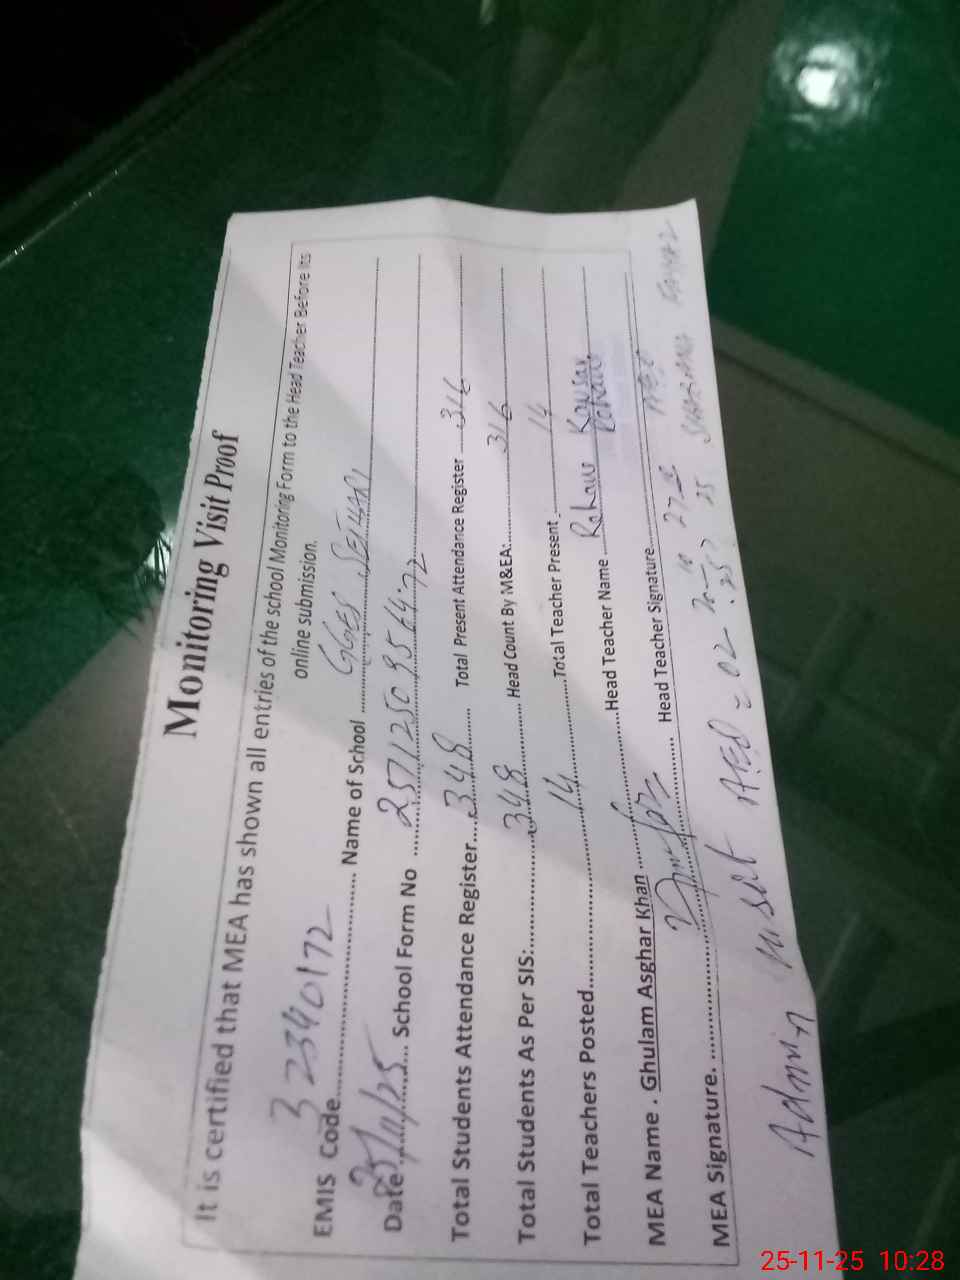 Monitoring Visit Proof
It is certified that MEA has shown all entries of the school Monitoring Form to the Head Teacher Before its
online submission.
EMIS Code 32340172 Name of School GGES
Date 25/11/25 School Form No
Total Students Attendance Register 348 Total Present Attendance Register 316
Total Students As Per SIS: 348 Head Count By M&EA: 316
Total Teachers Posted 14 Total Teacher Present 14
MEA Name . Ghulam Asghar Khan Head Teacher Name Kousar
MEA Signature. Head Teacher Signature
Admin visit AEO = 02
25-11-25 10:28